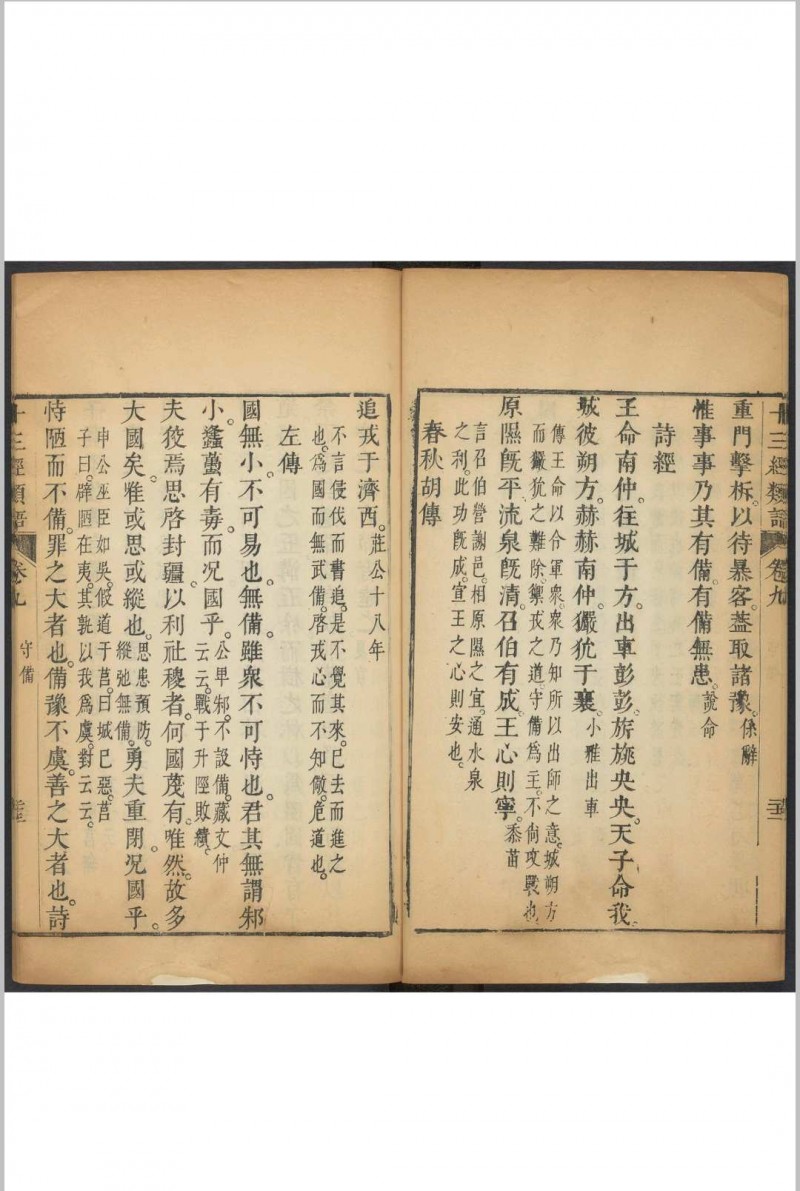 十三經類語 卷九
重門擊柝。以待暴客。葢取諸豫。係辭
惟事事乃其有備。有備無患。說命
詩經
王命南仲。往城于方。出車彭彭。旂旐央央。天子命我。
城彼朔方。赫赫南仲。玁狁于襄。小雅出車
傳王命以令軍衆。衆乃知所以出師之意。城朔方
而玁狁之難除。禦戎之道。守備爲主。不尙攻戰也
原隰旣平。流泉旣清。召伯有成。王心則寧。黍苗
言召伯營謝邑。相原隰之宜。通水泉
之利。此功旣成。宣王之心則安也。
春秋胡傳
追戎于濟西。莊公十八年
不言侵伐而書追。是不覺其來。已去而進之
也。爲國而無武備。啓戎心而不知儆。危道也。
左傳
國無小。不可易也。無備。雖衆不可恃也。君其無謂邾
小。蠭蠆有毒。而况國乎。公卑邾。不設備。臧文仲
云云。戰于升陘敗績。
夫狡焉思啓封疆。以利社稷者。何國蔑有。唯然。故多
大國矣。唯或思或縱也。思患預防。
縱弛無備。勇夫重閉。况國乎。
申公巫臣如吳。假道于莒。曰城已惡。莒
子曰。辟陋在夷。其孰以我爲虞。對云云。
恃陋而不備。罪之大者也。備豫不虞。善之大者也。詩
十三經類語 卷九 守備